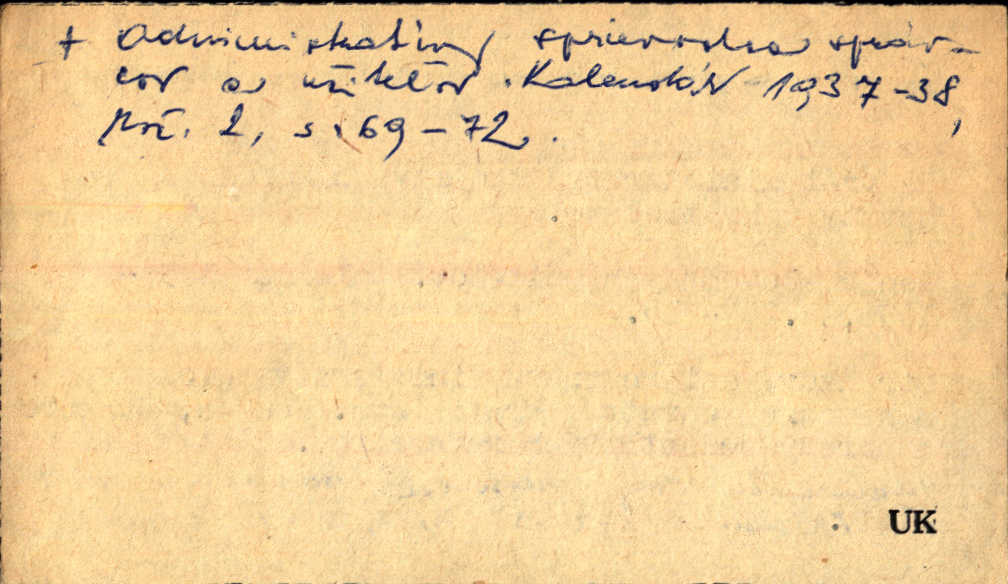 + Administratívny sprievodca správ-
cov a učiteľov. Kalendár 1937-38,
roč. 2, s. 69-72.
UK